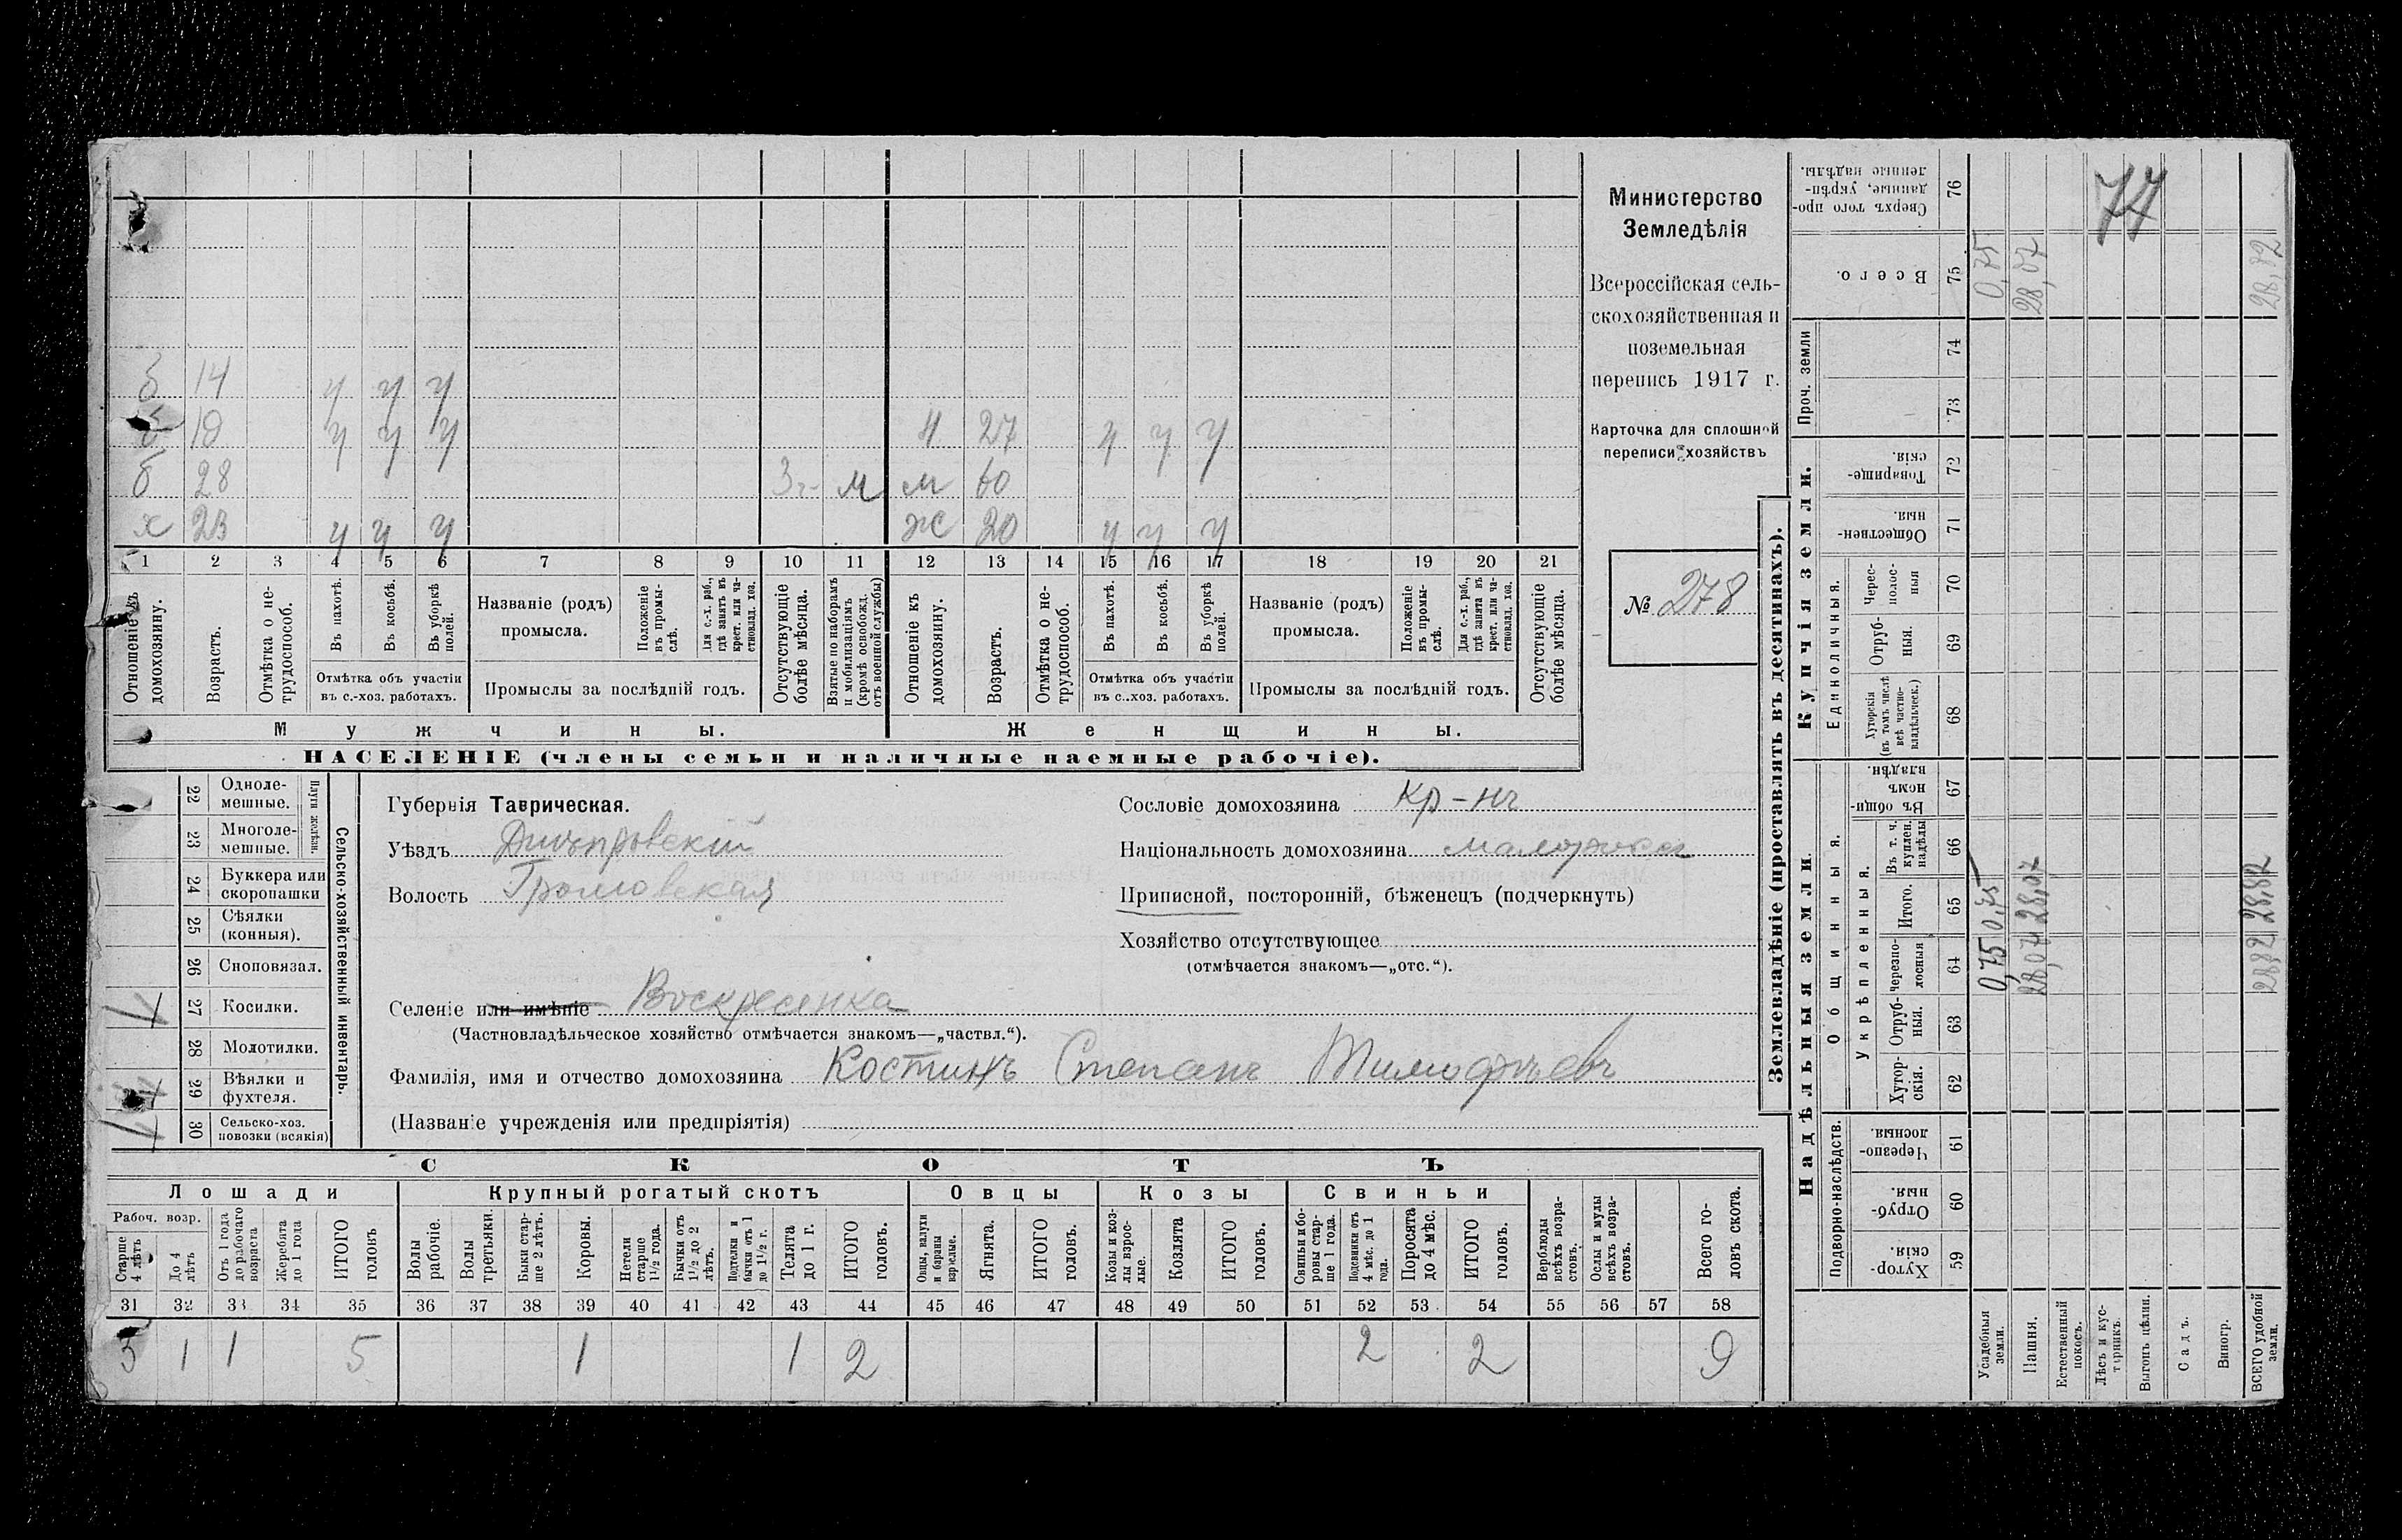 77
Министерство
Земледѣлія
Всероссійская сель-
скохозяйственная и
поземельная
перепись 1917 г.
Карточка для сплошной
переписи хозяйствъ
№ 278
б 14 у у у
б 18 у у у Н 27 у у у
б 28 3г. м м 60
х 23 у у у Ж 20 у у у
1 2 3 4 5 6 7 8 9 10 11 12 13 14 15 16 17 18 19 20 21
Отношеніе къ домохозяину.
Возрастъ.
Отмѣтка о не-трудоспособ.
Въ пахотѣ.
Въ косьбѣ.
Въ уборкѣ полей.
Отмѣтка объ участіи
въ с.-хоз. работахъ.
Названіе (родъ)
промысла.
Положеніе въ промы-слѣ.
Для с.-х. раб., гдѣ занятъ въ крест. или ча-стновлад. хоз.
Промыслы за послѣдній годъ.
Отсутствующіе болѣе мѣсяца.
Взятые по наборамъ и мобилизаціямъ (кромѣ освобожд. отъ военной службы)
Отношеніе къ домохозяину.
Возрастъ.
Отмѣтка о не-трудоспособ.
Въ пахотѣ.
Въ косьбѣ.
Въ уборкѣ полей.
Отмѣтка объ участіи
въ с..хоз. работахъ.
Названіе (родъ)
промысла.
Положеніе въ промы-слѣ.
Для с.-х. раб., гдѣ занята въ крест. или ча-стновлад. хоз.
Промыслы за послѣдній годъ.
Отсутствующіе болѣе мѣсяца.
Мужчины. Женщины.
НАСЕЛЕНІЕ (члены семьи и наличные наемные рабочіе).
22 Одноле-мешные.
23 Многоле-мешные.
Плуги желѣзн.
24 Буккера или скоропашки
25 Сѣялки (конныя).
26 Сноповязал.
27 Косилки.
28 Молотилки.
29 Вѣялки и фухтеля.
30 Сельско-хоз. повозки (всякія)
Сельско-хозяйственный инвентарь.
Губернія Таврическая.
Уѣздъ Днѣпровскій
Волость Громовская
Селеніе или имѣніе Воскресенка
(Частновладѣльческое хозяйство отмѣчается знакомъ—„частвл.“).
Фамилія, имя и отчество домохозяина Костинъ Степанъ Тимофѣевъ
(Названіе учрежденія или предпріятія)
Сословіе домохозяина кр-нъ
Національность домохозяина малороссъ
Приписной, посторонній, бѣженецъ (подчеркнуть)
Хозяйство отсутствующее
(отмѣчается знакомъ—„отс.“).
СКОТЪ
Лошади Крупный рогатый скотъ Овцы Козы Свиньи
Рабоч. возр.
Старше 4 лѣтъ
До 4 лѣтъ
Отъ 1 года до рабочаго возраста
Жеребята до 1 года
ИТОГО головъ
Волы рабочіе.
Волы третьяки.
Быки стар-ше 2 лѣтъ.
Коровы.
Нетели старше 1½ года.
Бычки отъ 1½ до 2 лѣтъ.
Подтелки и бычки отъ 1 до 1½ г.
Телята до 1 г.
ИТОГО головъ.
Овцы, валухи и бараны взрослые.
Ягнята.
ИТОГО головъ.
Козы и коз-лы взрос-лые.
Козлята
ИТОГО головъ.
Свиньи и бо-ровы стар-ше 1 года.
Подсвинки отъ 4 мѣс. до 1 года.
Поросята до 4 мѣс.
ИТОГО головъ.
Верблюды всѣхъ возра-стовъ.
Ослы и мулы всѣхъ возра-стовъ.
Всего го-ловъ скота.
31 32 33 34 35 36 37 38 39 40 41 42 43 44 45 46 47 48 49 50 51 52 53 54 55 56 57 58
3 1 1 5 1 1 2 2 2 9
Землевладѣніе (проставлять въ десятинахъ).
Купчія земли.
Надѣльныя земли.
Сверхъ того про-данные, укрѣп-ленные надѣлы. 76
Всего. 75
Проч. земли 74 73
Товарище-скія. 72
Обществен-ныя 71
Единоличныя.
Черес-полос-ныя 70
Отруб-ныя. 69
Хуторскія (въ томъ числѣ всѣ частно-владѣльческ.) 68
Общинныя.
Въ общи-номъ владѣн. 67
Укрѣпленныя.
Въ т. ч. куплен. надѣлы 66
Итого. 65
Черезпо-лосныя 64
Отруб-ныя. 63
Хутор-скія. 62
Подворно-наслѣдств.
Черезпо-лосныя. 61
Отруб-ныя. 60
Хутор-скія. 59
Усадебныя земли. 0,75 0,75 0,75
Пашня. 28,07 28,07 28,07
Естественный покосъ.
Лѣсъ и кус-тарникъ.
Выгонъ цѣлин.
Садъ.
Виногр.
ВСЕГО удобной земли. 28,82 28,82 28,82